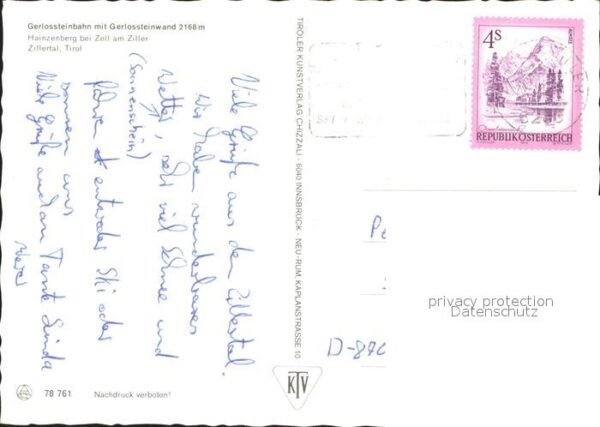 Gerlossteinbahn mit Gerlossteinwand 2168 m
Hainzenberg bei Zell am Ziller
Zillertal, Tirol
Viele Grüße aus dem Zillertal.
Wir haben wunderbares
Wetter, sehr viel Schnee und
(Sonnenschein)
fahren entweder Ski oder
sonnen uns
Viele Grüße auch an Tante Linda
78 761
Nachdruck verboten!
TIROLER KUNSTVERLAG CHIZZALI · 6040 INNSBRUCK · NEU-RUM, KAPLANSTRASSE 10
KTV
4S
REPUBLIK ÖSTERREICH
D-870
privacy protection
Datenschutz